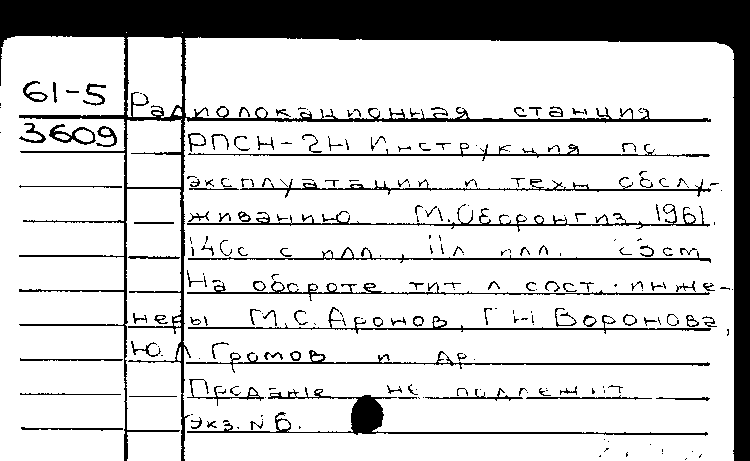 61-5 Радиолокационная станция
3609 РПСН-2Н Инструкция по
эксплуатации и техн обслу-
живанию. М., Оборонгиз, 1961.
140с с илл., 11л илл.
На обороте тит. л сост.: инже-
неры М.С. Аронов, Г Н Воронова,
Ю.Л. Громов и др.
Продаже не подлежит
Экз. N 6.